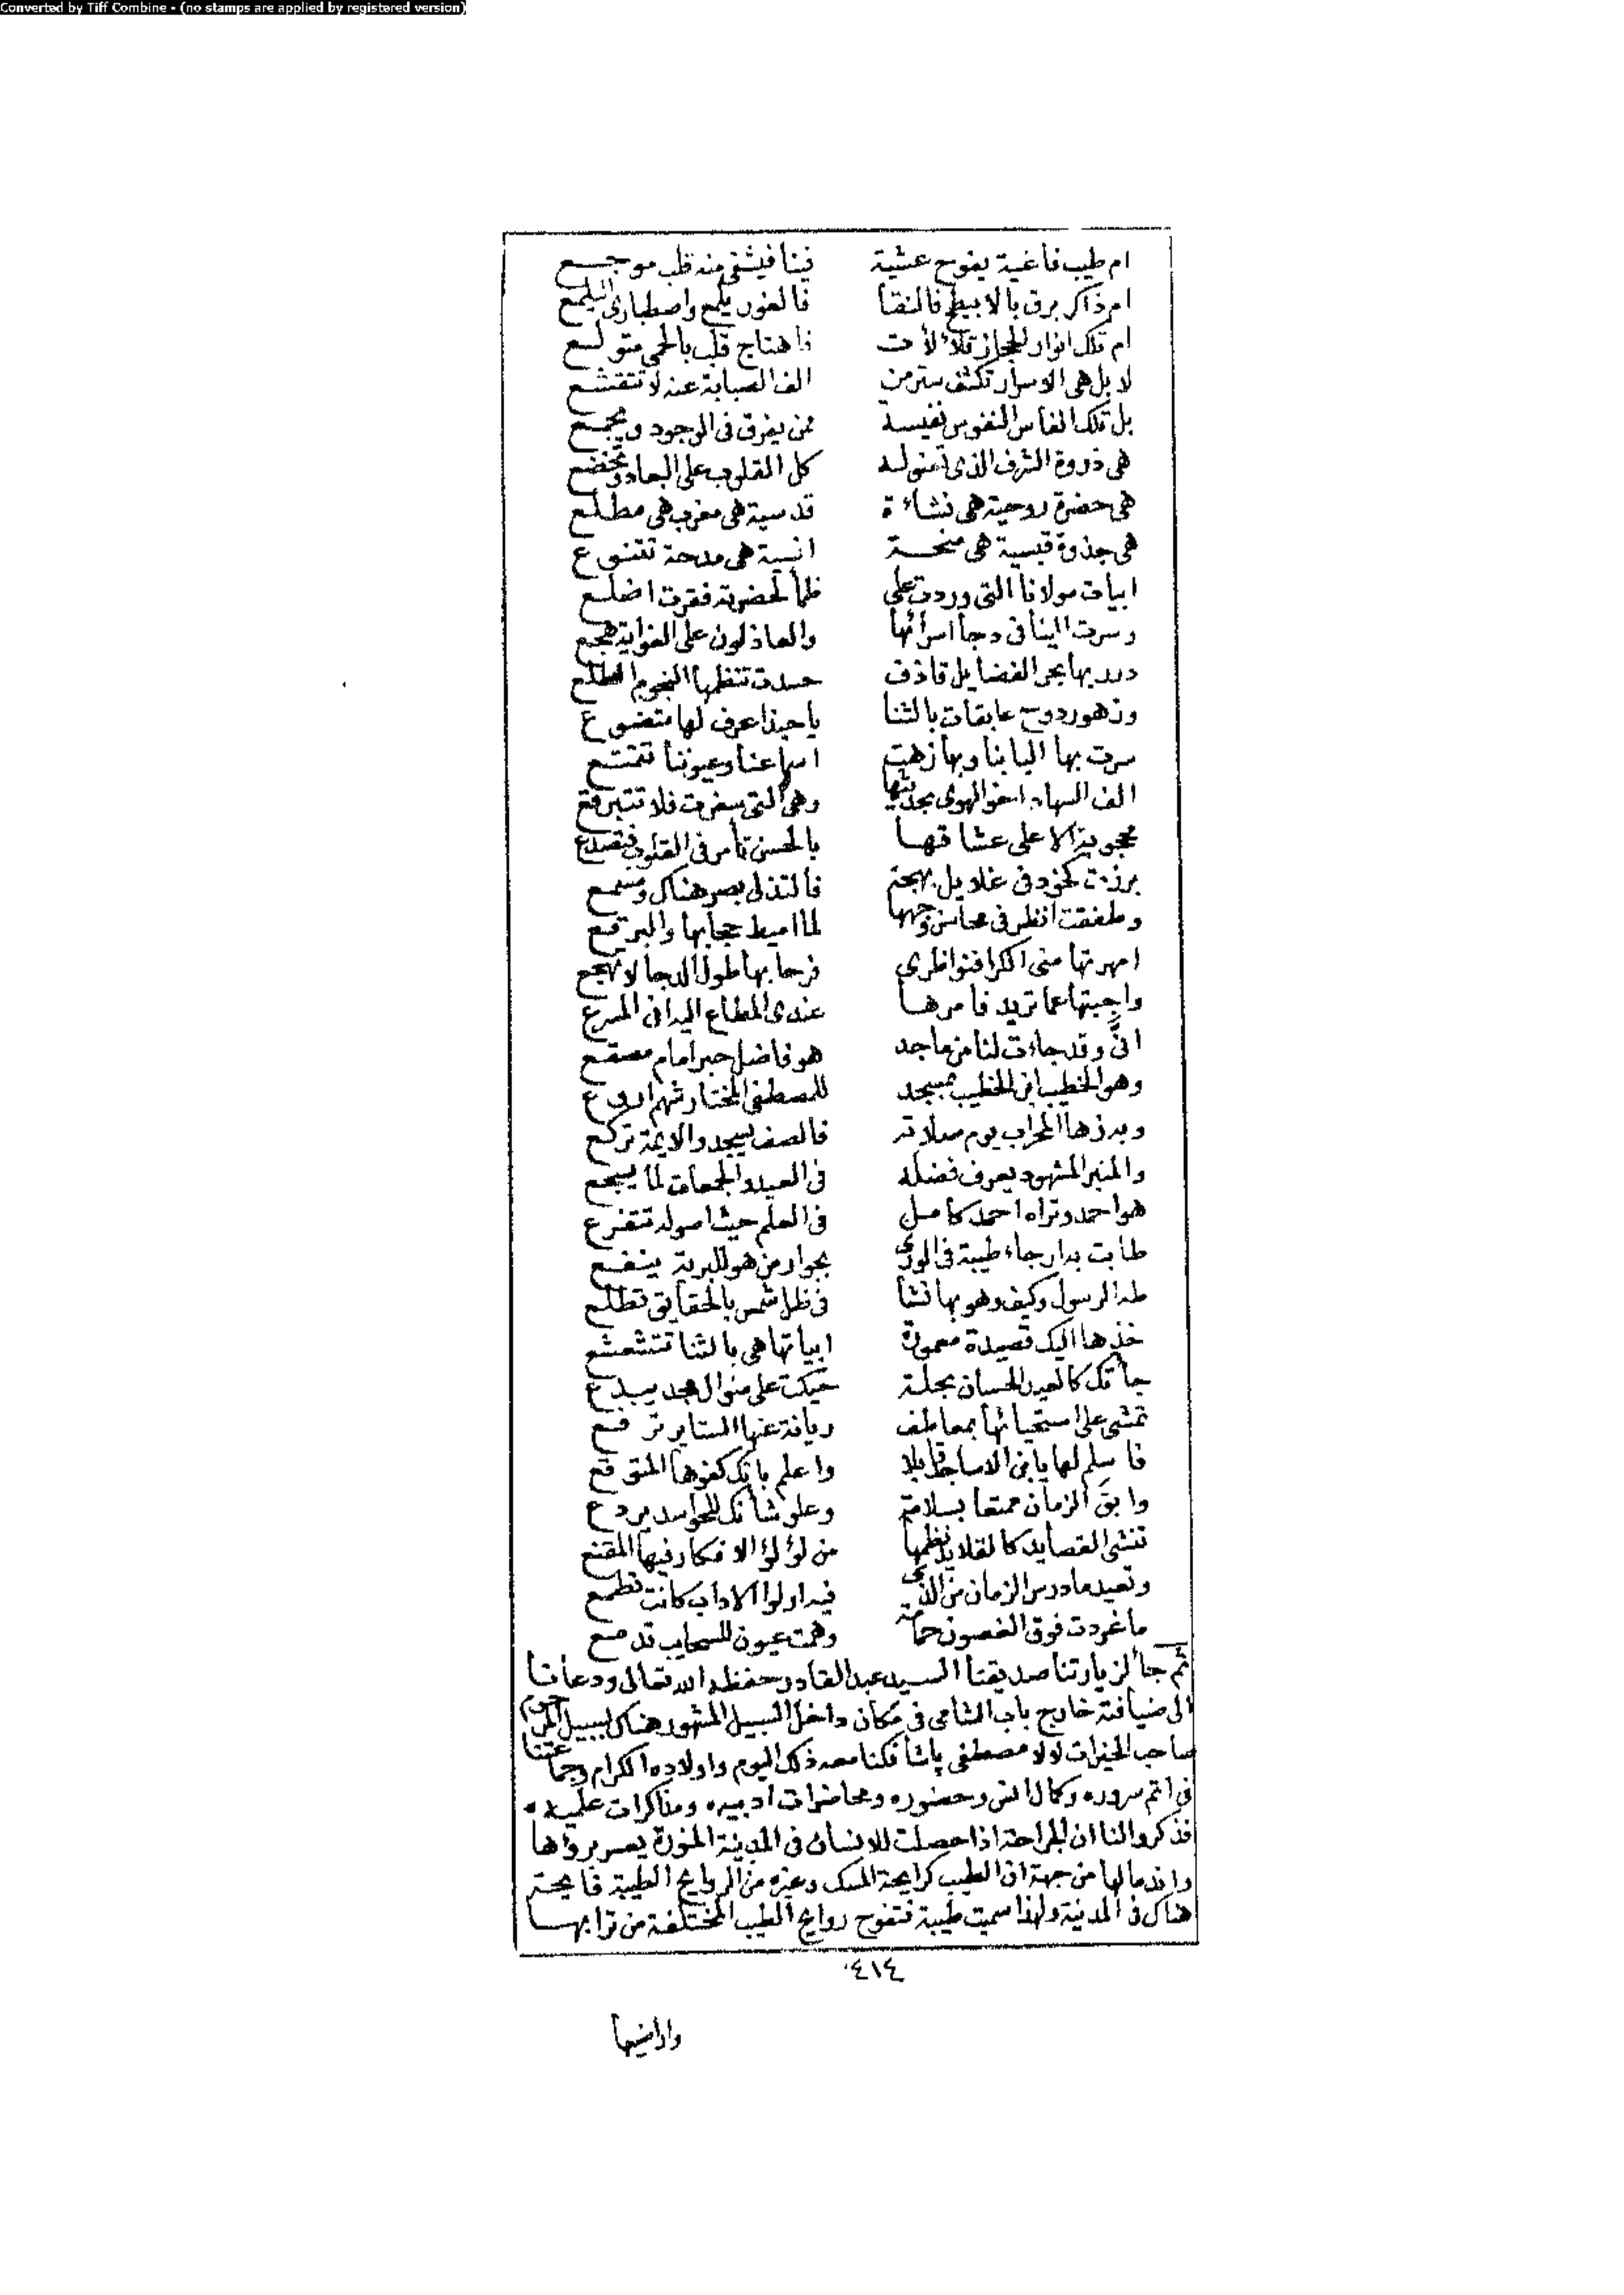 Converted by Tiff Combine - (no stamps are applied by registered version)
ام طيب فاغية يفوح عشية فينا فيشفى منه قلب موجع
ام ذاكر برق بالابيطح فالنقا فالغور يلمع واصطبارى يلمع
ام تلك انوار الحجاز تلألأت فاهتاج قلب بالحمى متولع
لا بل هى الاسرار تكشف ستر من الف الصبابة عنه لا تتقشع
بل تلك انفاس النفوس نفيسة ممن يفرق فى الوجود ويجمع
هى ذروة الشرف الذى تعنو له كل القلوب على البعاد وتخضع
هى حضرة روحية هى نشاءة قدسية هى مغرب هى مطلع
هى جذوة قبسية هى منحة انسية هى مدحة تتنوع
ابيات مولانا التى وردت على ظمأ لحضرته فقرت اضلع
وسرت الينا فى دجا اسرائها والعاذلون على الغواية هجع
درر بها بحر الفضايل قاذف حسدت تنظمها النجوم الطلع
وزهور دوح عابقات بالثنا يا حبذا عرف لها متضوع
سرت بها البابنا وبها زهت اسماعنا وعيوننا تتمتع
الف السهاد اخو الهوى بحديثها وهى التى سفرت فلا تتبرقع
محجوبة الا على عشاقها بالحسن تأمر فى القلوب فتصدع
برزت كخود فى غلايل بهجة فالتذ لى بصر هناك ومسمع
وطفقت انظر فى محاسن وجهها لما اميط حجابها والبرقع
امهرتها منى الكرا فنواظرى فرحا بها طول الدجا لا تهجع
واجبتها عما تريد فامرها عندى المطاع اليه انى المسرع
انى وقد جاءت لنا من ماجد هو فاضل حبر امام مصقع
وهو الخطيب ابن الخطيب بمسجد للمصطفى المختار شهم اروع
وبه زها المحراب يوم صلاته فالصف يسجد والايمة تركع
والمنبر المشهود يعرف فضله فى العيد والجمعات لما يسجع
هو احمد وتراه احمد كامل فى العلم حيث اصوله تتفرع
طابت بدار جاء طيبة فى الورى بجوار من هو للبرية ينفع
طه الرسول وكيف وهو بها نشا فى ظل شمس بالحقايق تطلع
خذها اليك قصيدة معمورة ابياتها هى بالثنا تتشعشع
جأتك كالعيد الحسان بحلة حيكت على منوال مجد يبدع
تمشى على استحيائها بمعاطف ريانة عنها الستاير ترفع
فاسلم لها يا ابن الاماجد قابلا واعلم بانك كفوها المتوقع
وابق الزمان ممتعا بسلامة وعلو شأنك للحواسد يردع
تنشى القصايد كالقلايد نظمها من لؤلؤ الافكار فيها المقنع
وتعيد ما درس الزمان من الذى فيه اولوا الاداب كانت تطمع
ما غردت فوق الغصون حمامة وهمت عيون للسحايب تدمع
ثم جأ لزيارتنا صديقنا السيد عبد القادر حفظه الله تعالى ودعانا
الى ضيافته خارج باب الشامى فى مكان داخل السبيل المشهور هناك بسبيل المرحوم
صاحب الخيرات لولا مصطفى باشا فكنا معه ذلك اليوم واولاده الكرام وجماعتنا
فى اتم سروره وكمال انس وحضوره ومحاضرات ادبيه ومذاكرات علميه
فذكروا لنا ان الجراحة اذا حصلت للانسان فى المدينة المنورة يعسر برؤها
واندمالها من جهة ان الطيب كرايحة المسك وغيره من الروايح الطيبة فايحة
هناك فى المدينة ولهذا سميت طيبة فتفوح روايح الطيب المختلفة من ترابها
٤١٤
واراضيها